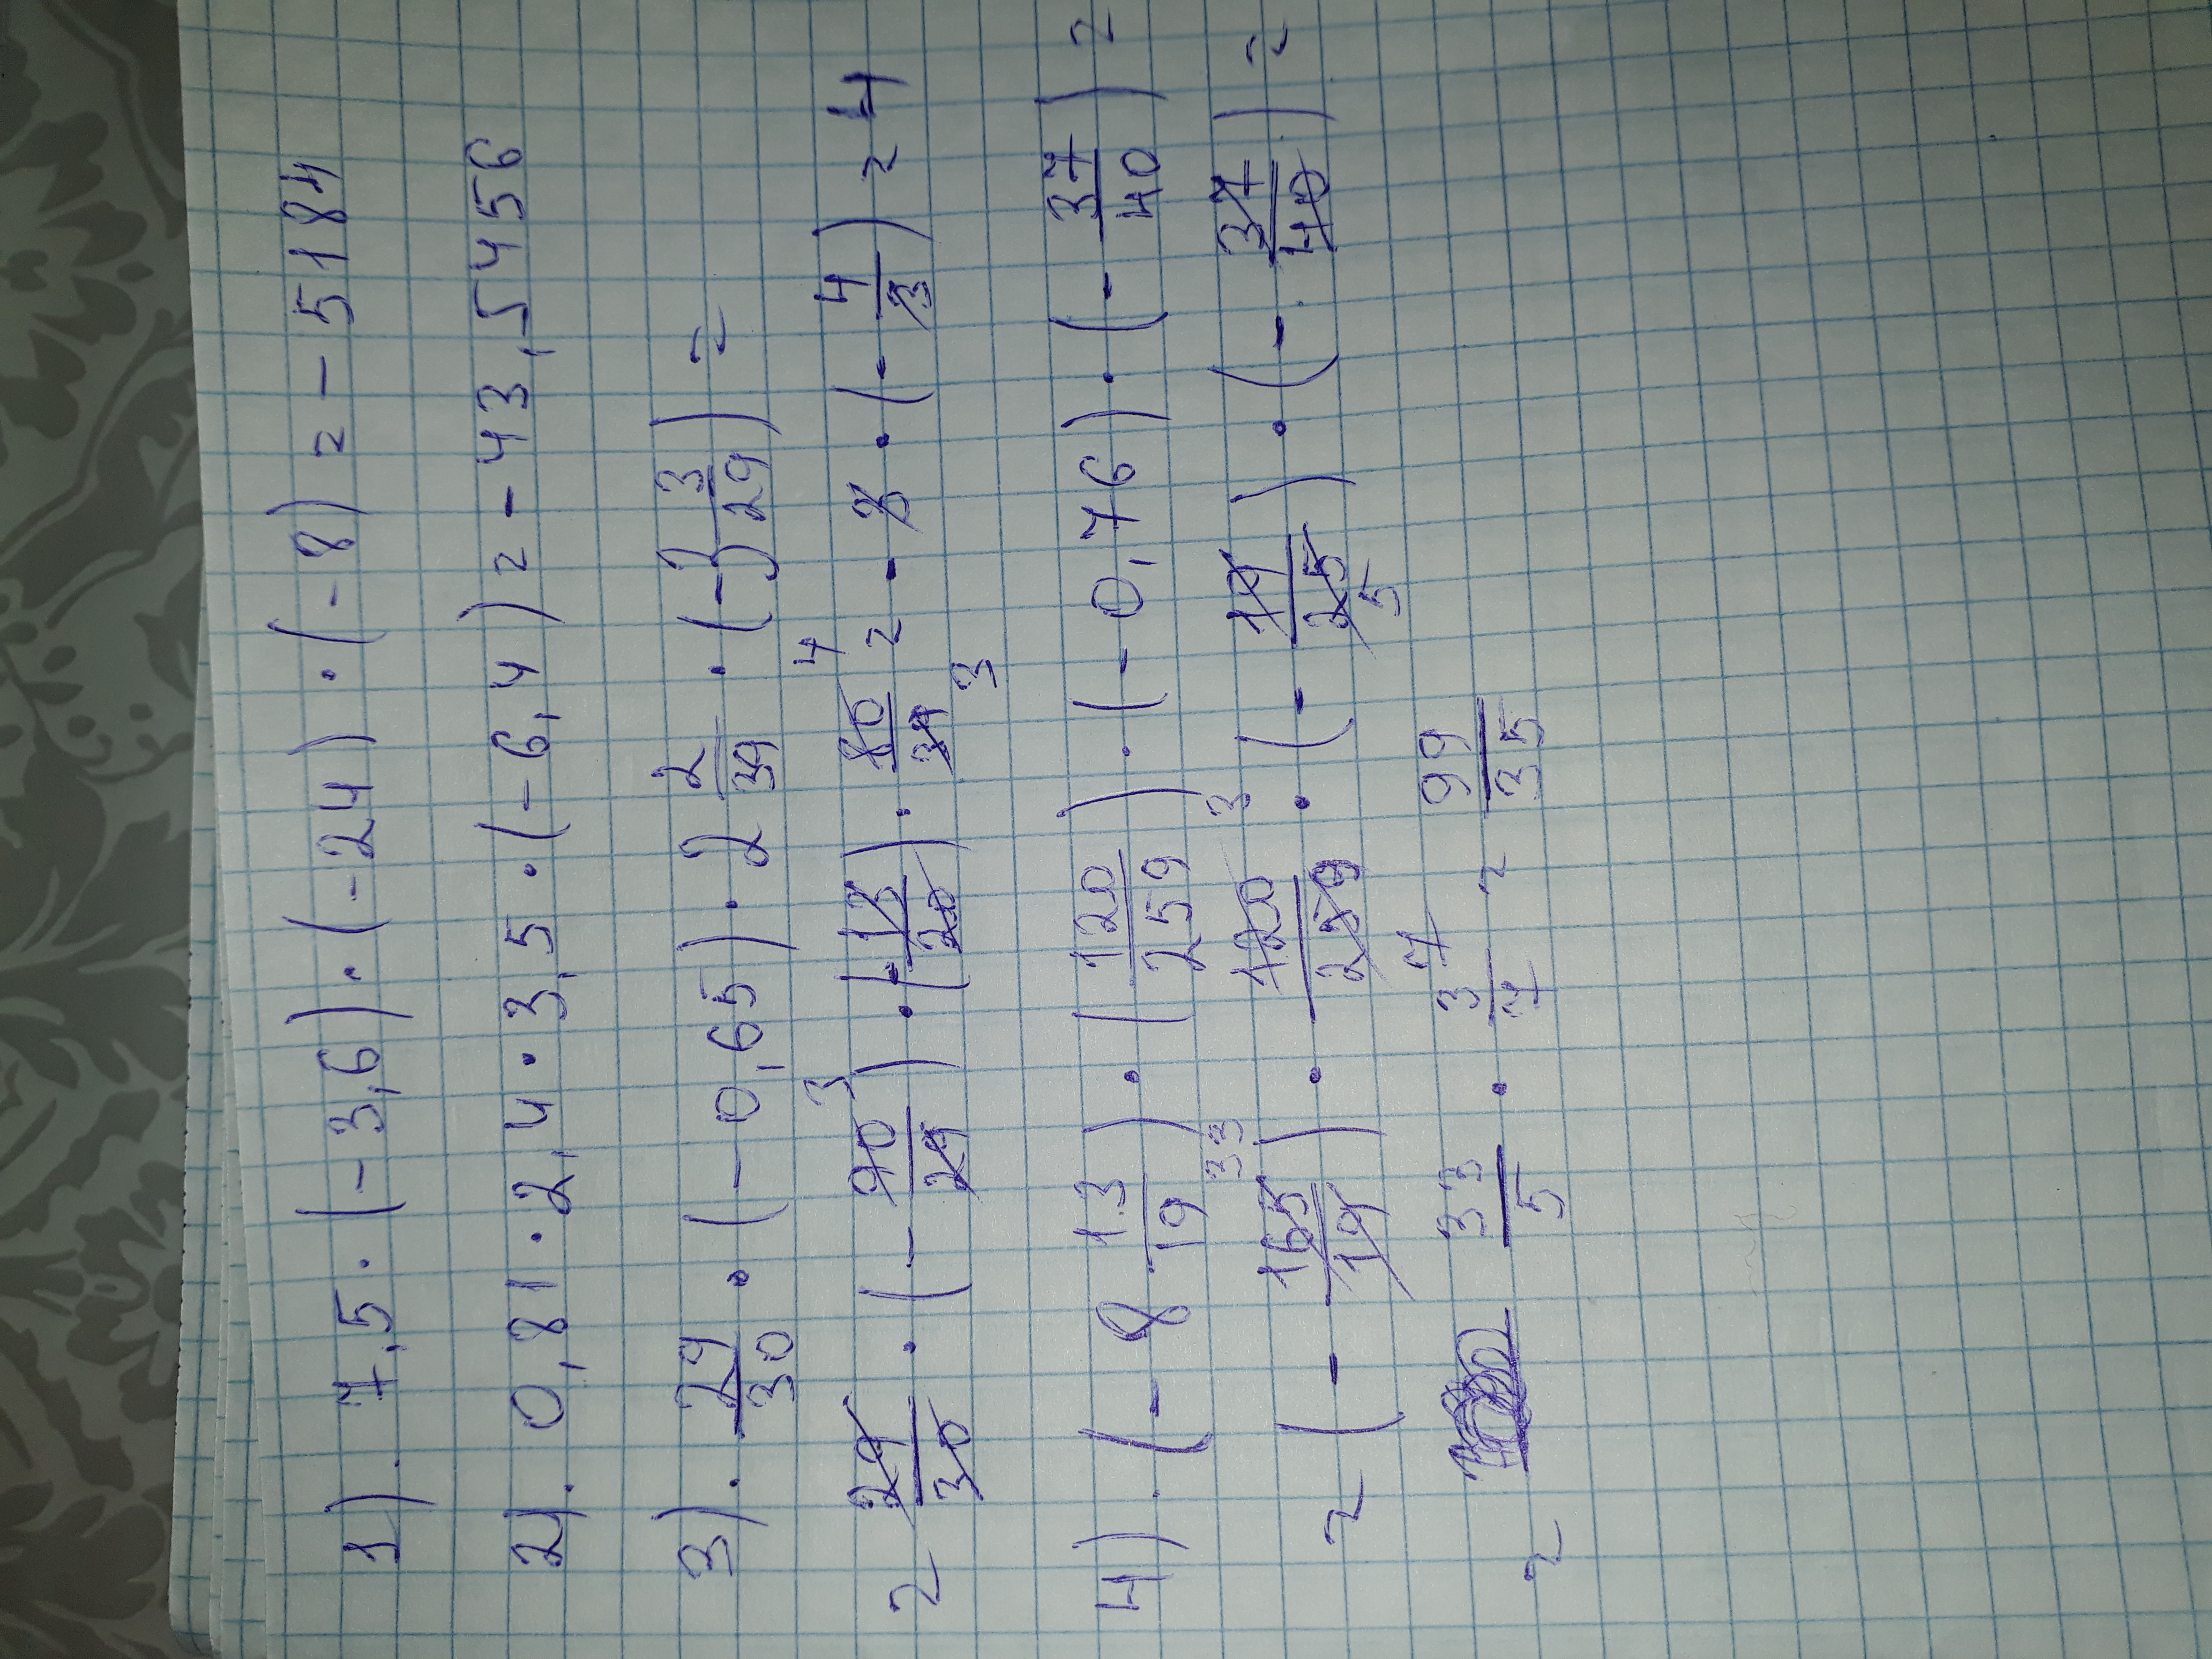 1). 7,5 · (-3,6) · (-24) · (-8) = -5184
2). 0,81 · 2,4 · 3,5 · (-6,4) = -43,5456
3). 29/30 · (-0,65) · 2 2/39 · (-3 3/29) =
= 29/30 · (-90/29) 3 · (-13/20) · 80/39 4 3 = -3 · (-4/3) = 4
4). (-8 13/19) · (120/259) · (-0,76) · (-37/40) =
= (-165/19) 33 · 120/259 3 7 · (-19/25 5) · (-37/40) =
= 33/5 · 3/7 = 99/35